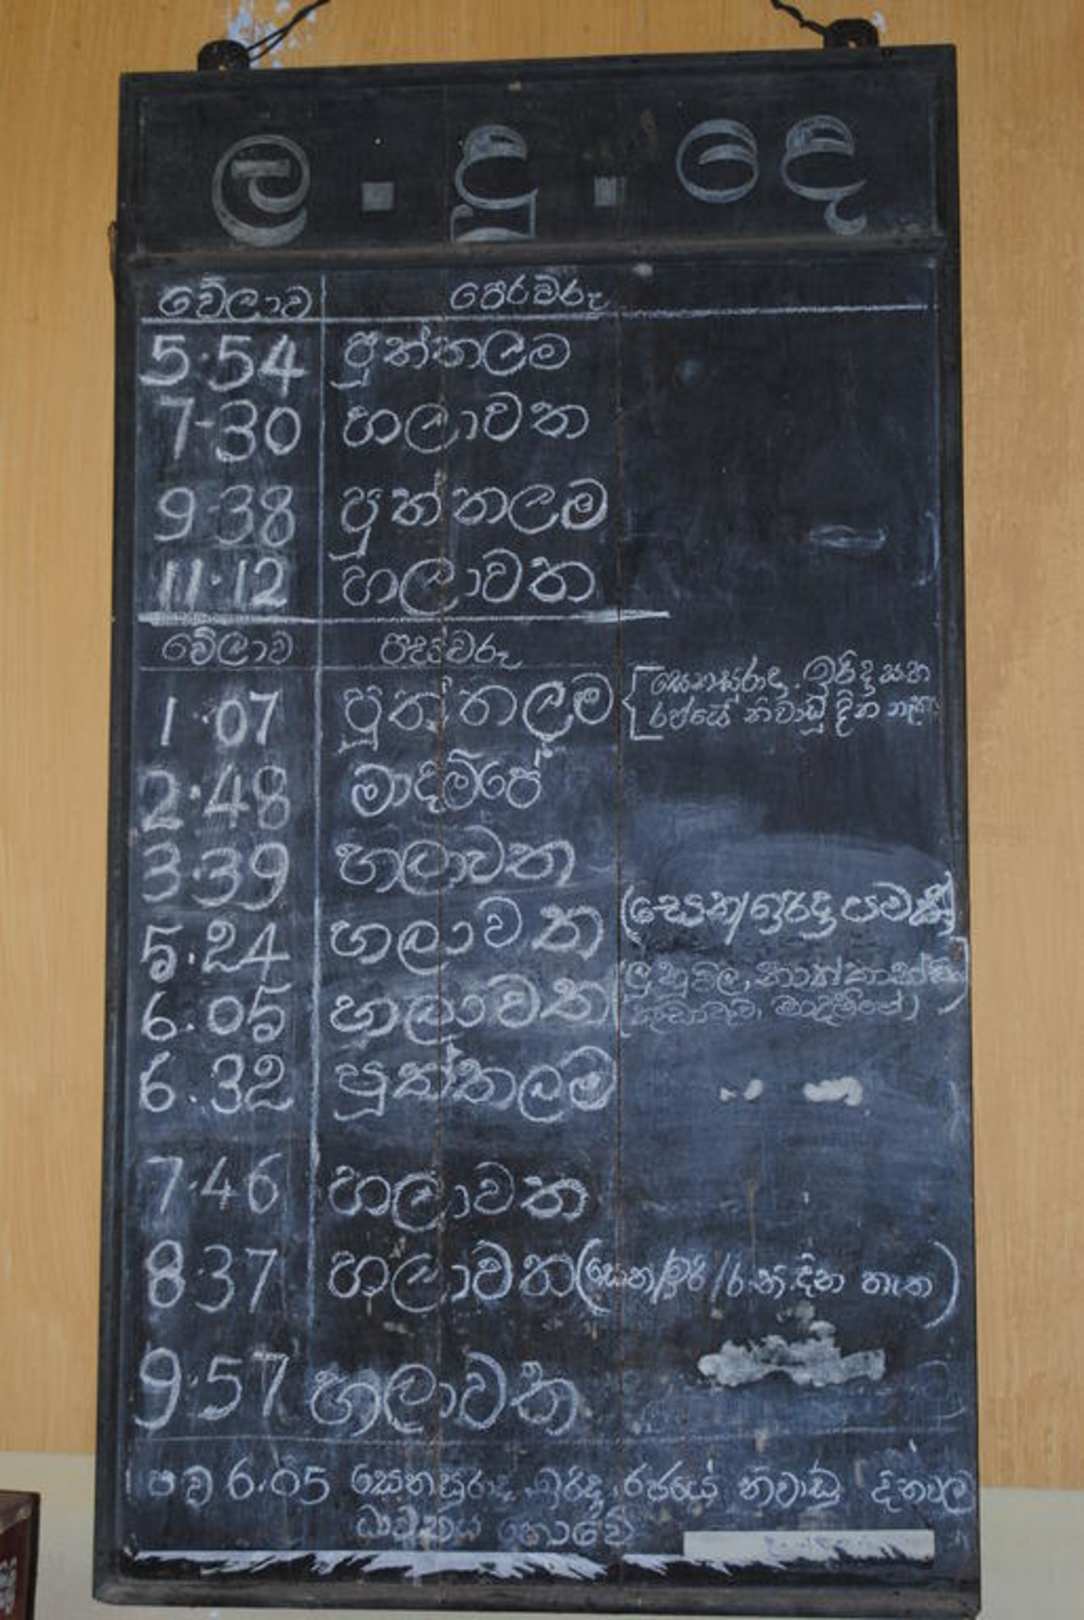 ල . දු . මේ
වේලාව පෙරවරු
5.54 පුත්තලම
7.30 හලාවත
9.38 පුත්තලම
11.12 හලාවත
වේලාව පස්වරු
1.07 පුත්තලම සෙනසුරාදා. ඉරිදු සහ
රජයේ නිවාඩු දින නැත
2.48 මාදම්පේ
3.39 හලාවත
5.24 හලාවත (සෙන/ඉරිදු පමණි)
6.05 හලාවත (ලුණුවිල, නාත්තන්ඩිය
මාදම්පේ)
6.32 පුත්තලම
7.46 හලාවත
8.37 හලාවත (සෙන/ඉරි/ර.නි.දින නැත)
9.57 හලාවත
ප ව 6.05 සෙනසුරාදා, ඉරිදු, රජයේ නිවාඩු දිනවල
ධාවනය නොවේ